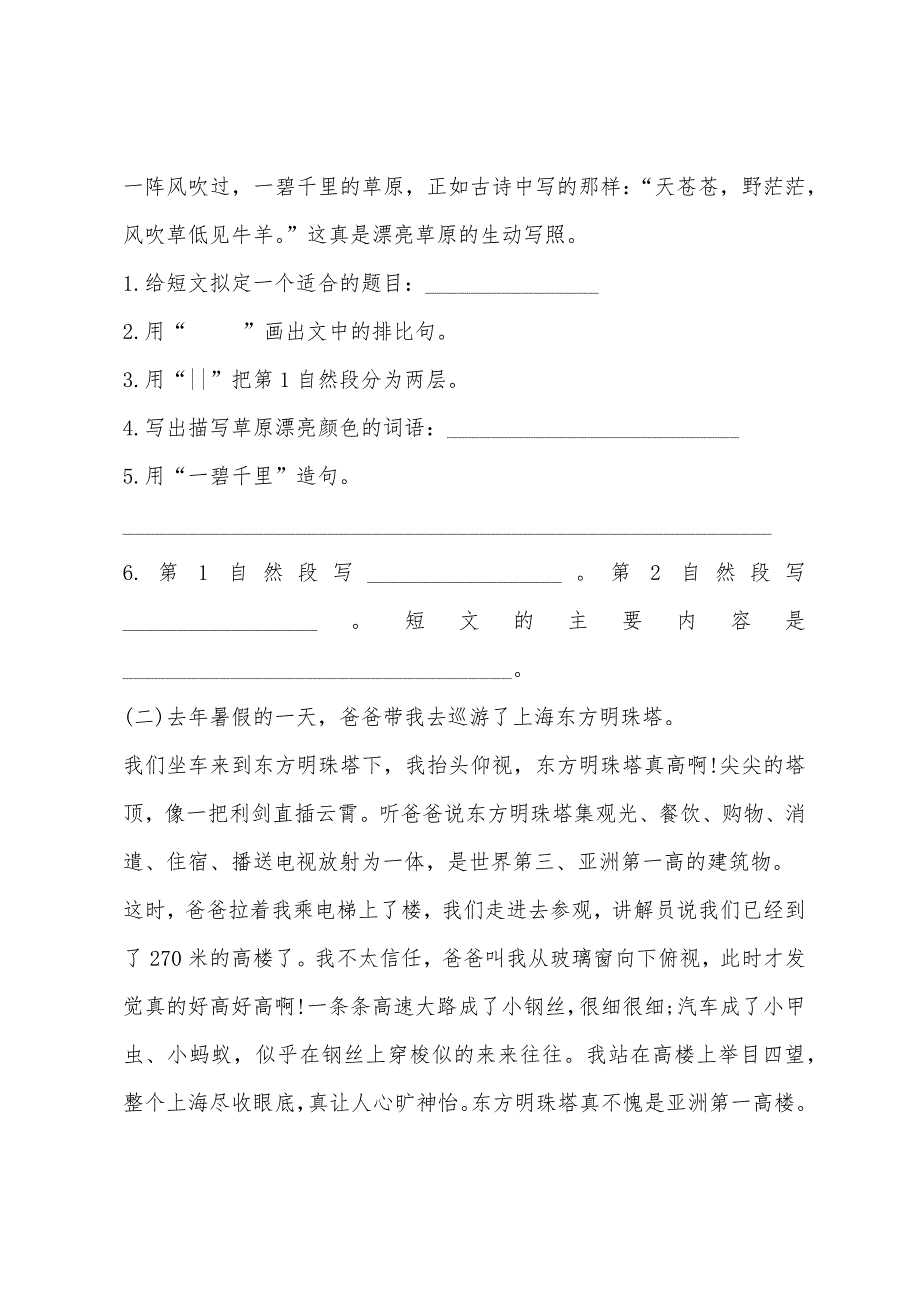 一阵风吹过，一碧千里的草原，正如古诗中写的那样：“天苍苍，野茫茫，
风吹草低见牛羊。”这真是漂亮草原的生动写照。
1.给短文拟定一个适合的题目：________________
2.用“　　”画出文中的排比句。
3.用“||”把第1自然段分为两层。
4.写出描写草原漂亮颜色的词语：___________________________
5.用“一碧千里”造句。
____________________________________________________________
6.第1自然段写__________________。第2自然段写
__________________。短文的主要内容是
____________________________________。
(二)去年暑假的一天，爸爸带我去巡游了上海东方明珠塔。
我们坐车来到东方明珠塔下，我抬头仰视，东方明珠塔真高啊!尖尖的塔
顶，像一把利剑直插云霄。听爸爸说东方明珠塔集观光、餐饮、购物、消
遣、住宿、播送电视放射为一体，是世界第三、亚洲第一高的建筑物。
这时，爸爸拉着我乘电梯上了楼，我们走进去参观，讲解员说我们已经到
了270米的高楼了。我不太信任，爸爸叫我从玻璃窗向下俯视，此时才发
觉真的好高好高啊!一条条高速大路成了小钢丝，很细很细;汽车成了小甲
虫、小蚂蚁，似乎在钢丝上穿梭似的来来往往。我站在高楼上举目四望，
整个上海尽收眼底，真让人心旷神怡。东方明珠塔真不愧是亚洲第一高楼。